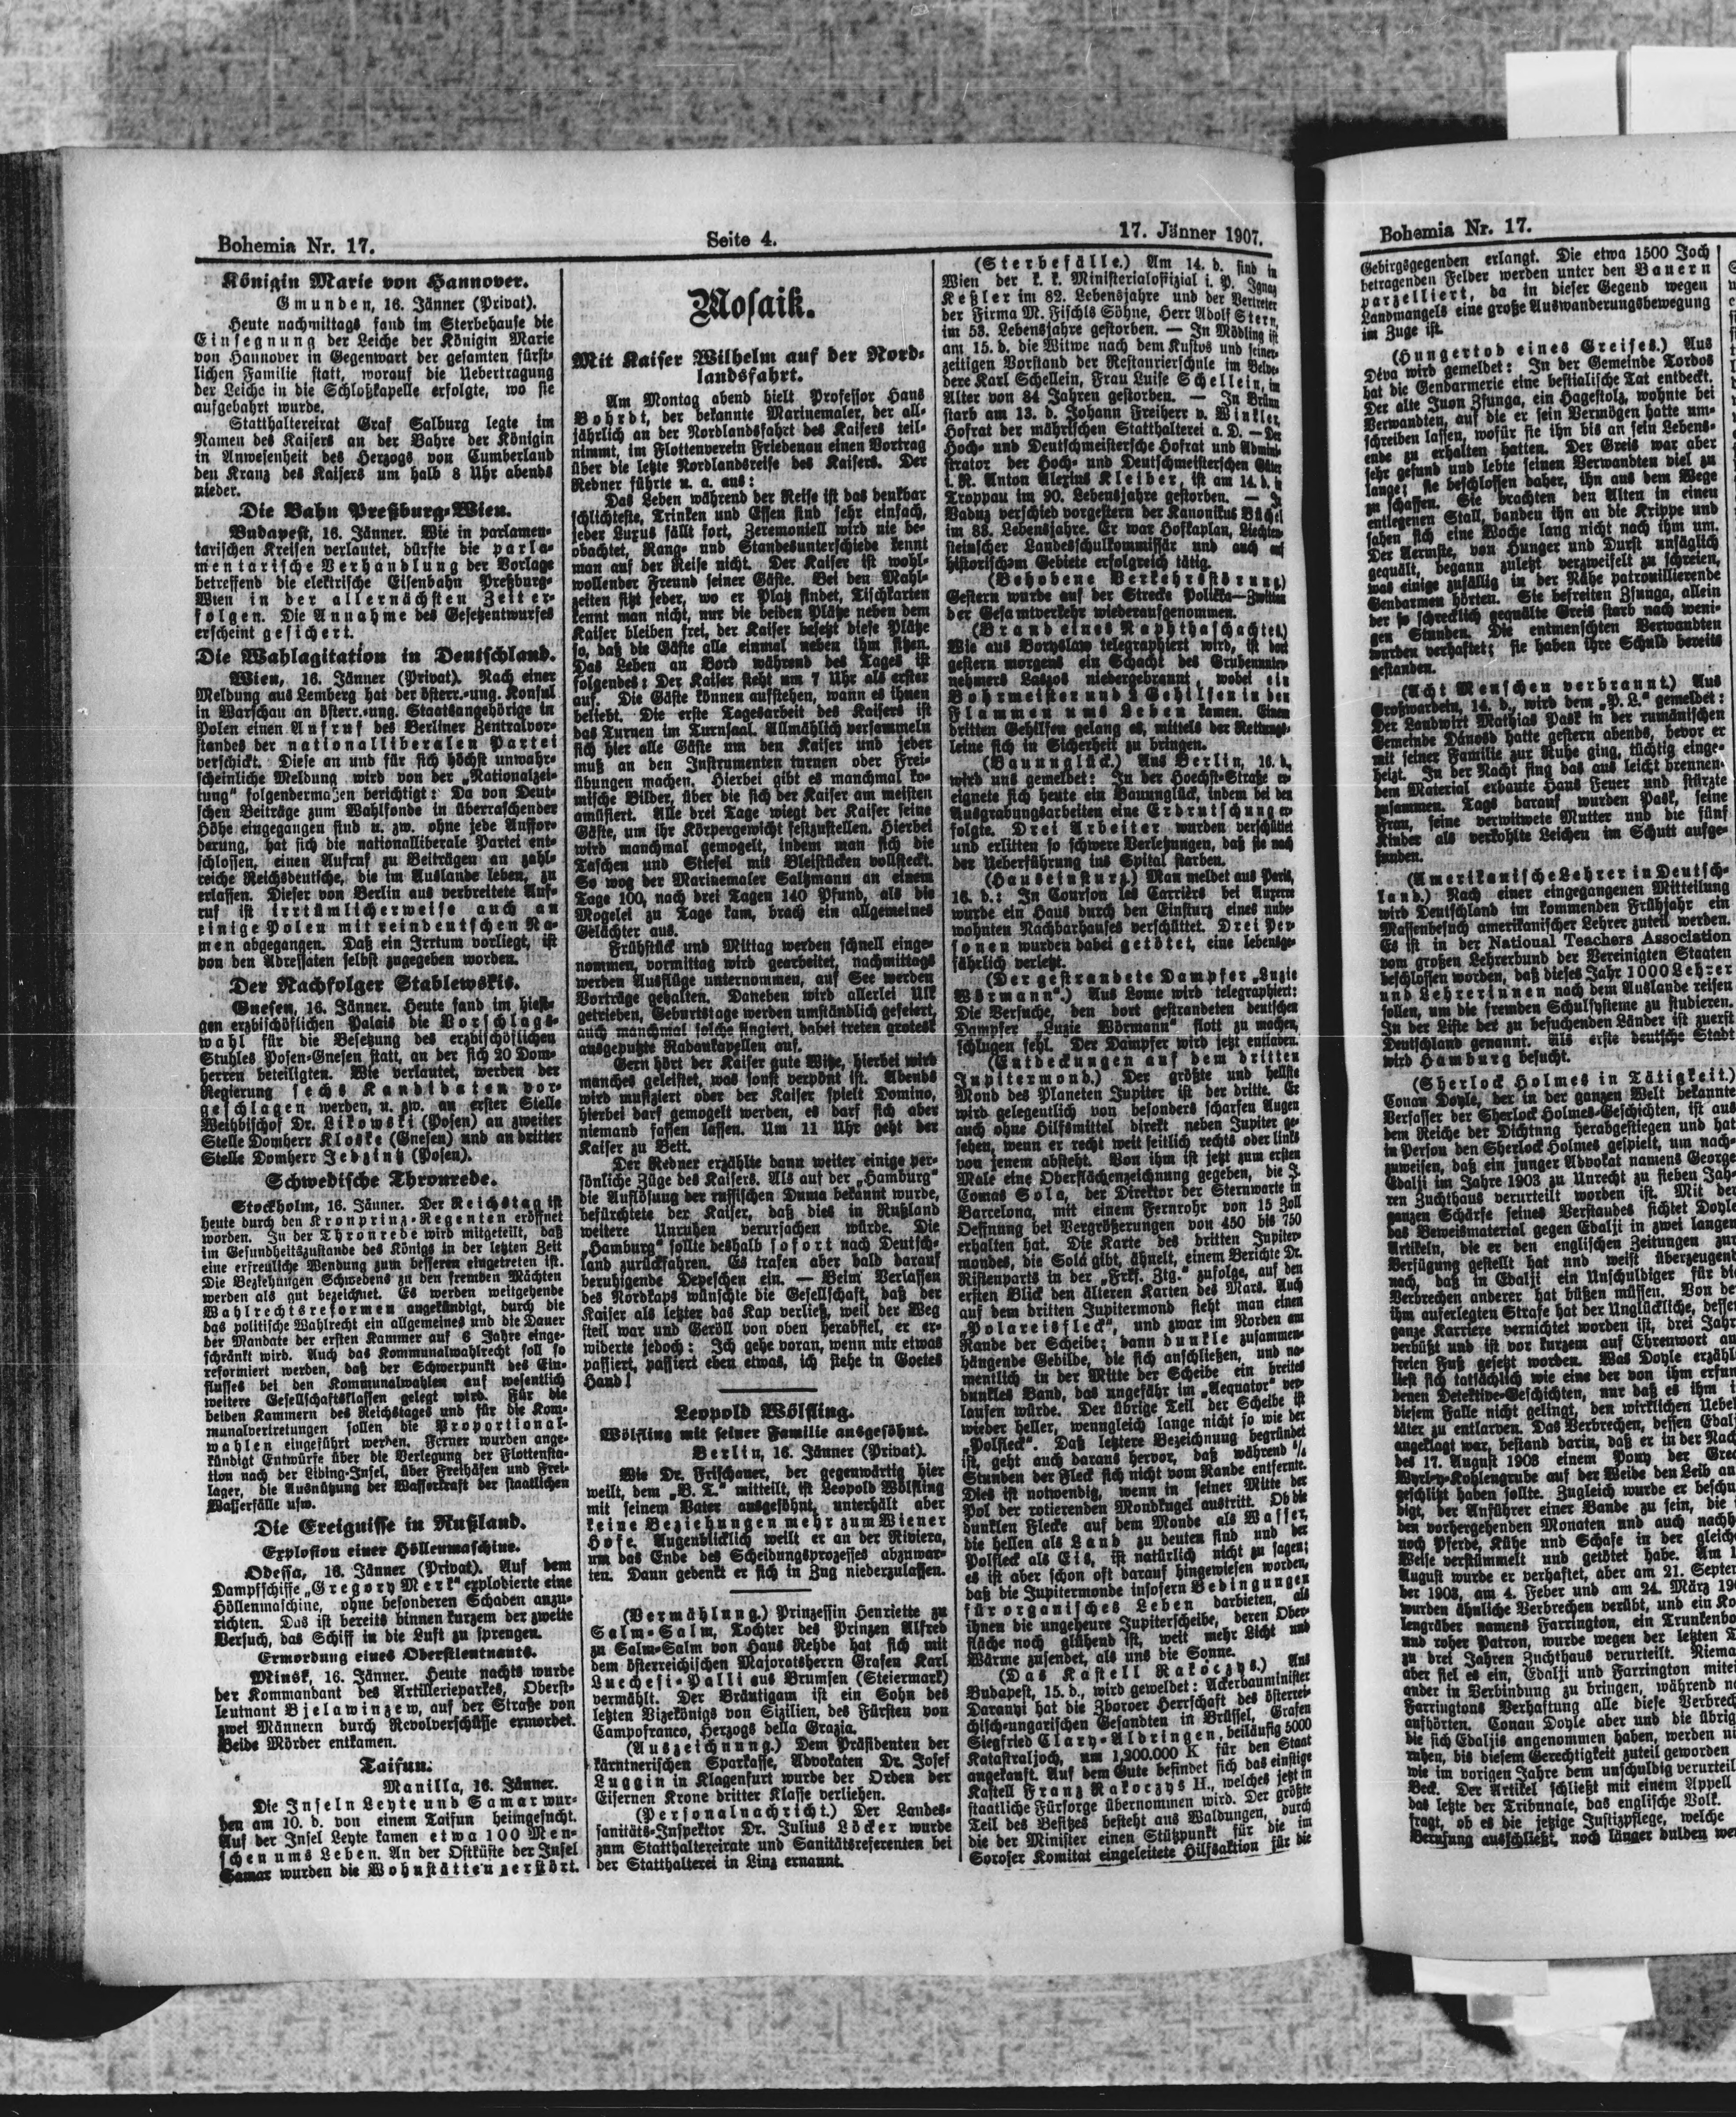 Bohemia Nr. 17.
Seite 4.
17. Jänner 1907.
Königin Marie von Hannover.
Gmunden, 16. Jänner (Privat).
Heute nachmittags fand im Sterbehause die
Einsegnung der Leiche der Königin Marie
von Hannover in Gegenwart der gesamten fürst-
lichen Familie statt, worauf die Uebertragung
der Leiche in die Schloßkapelle erfolgte, wo sie
aufgebahrt wurde.
Statthaltereirat Graf Salburg legte im
Namen des Kaisers an der Bahre der Königin
in Anwesenheit des Herzogs von Cumberland
den Kranz des Kaisers um halb 8 Uhr abends
nieder.
Die Bahn Preßburg-Wien.
Budapest, 16. Jänner. Wie in parlamen-
tarischen Kreisen verlautet, dürfte die parla-
mentarische Verhandlung der Vorlage
betreffend die elektrische Eisenbahn Preßburg-
Wien in der allernächsten Zeit er-
folgen. Die Annahme des Gesetzentwurfes
erscheint gesichert.
Die Wahlagitation in Deutschland.
Wien, 16. Jänner (Privat). Nach einer
Meldung aus Lemberg hat der österr.-ung. Konsul
in Warschau an österr.-ung. Staatsangehörige in
Polen einen Aufruf des Berliner Zentralvor-
standes der nationalliberalen Partei
verschickt. Diese an und für sich höchst unwahr-
scheinliche Meldung wird von der „Nationalzei-
tung“ folgendermaßen berichtigt: Da von Deut-
schen Beiträge zum Wahlfonde in überraschender
Höhe eingegangen sind u. zw. ohne jede Auffor-
derung, hat sich die nationalliberale Partei ent-
schlossen, einen Aufruf zu Beiträgen an zahl-
reiche Reichsdeutsche, die im Auslande leben, zu
erlassen. Dieser von Berlin aus verbreitete Auf-
ruf ist irrtümlicherweise auch an
einige Polen mit reindeutschen Na-
men abgegangen. Daß ein Irrtum vorliegt, ist
von den Adressaten selbst zugegeben worden.
Der Nachfolger Stablewskis.
Gnesen, 16. Jänner. Heute fand im hiesi-
gen erzbischöflichen Palais die Vorschlags-
wahl für die Besetzung des erzbischöflichen
Stuhles Posen-Gnesen statt, an der sich 20 Dom-
herren beteiligten. Wie verlautet, werden der
Regierung sechs Kandidaten vor-
geschlagen werden, u. zw. an erster Stelle
Weihbischof Dr. Likowski (Posen) an zweiter
Stelle Domherr Kloske (Gnesen) und an dritter
Stelle Domherr Jedzink (Posen).
Schwedische Thronrede.
Stockholm, 16. Jänner. Der Reichstag ist
heute durch den Kronprinz-Regenten eröffnet
worden. In der Thronrede wird mitgeteilt, daß
im Gesundheitszustande des Königs in der letzten Zeit
eine erfreuliche Wendung zum besseren eingetreten ist.
Die Beziehungen Schwedens zu den fremden Mächten
werden als gut bezeichnet. Es werden weitgehende
Wahlrechtsreformen angekündigt, durch die
das politische Wahlrecht ein allgemeines und die Dauer
der Mandate der ersten Kammer auf 6 Jahre einge-
schränkt wird. Auch das Kommunalwahlrecht soll so
reformiert werden, daß der Schwerpunkt des Ein-
flusses bei den Kommunalwahlen auf wesentlich
weitere Gesellschaftsklassen gelegt wird. Für die
beiden Kammern des Reichstages und für die Kom-
munalvertretungen sollen die Proportional-
wahlen eingeführt werden. Ferner wurden ange-
kündigt Entwürfe über die Verlegung der Flottensta-
tion nach der Liding-Insel, über Freihäfen und Frei-
lager, die Ausnützung der Wasserkraft der staatlichen
Wasserfälle usw.
Die Ereignisse in Rußland.
Explosion einer Höllenmaschine.
Odessa, 16. Jänner (Privat). Auf dem
Dampfschiffe „Gregory Merk“ explodierte eine
Höllenmaschine, ohne besonderen Schaden anzu-
richten. Das ist bereits binnen kurzem der zweite
Versuch, das Schiff in die Luft zu sprengen.
Ermordung eines Oberstleutnants.
Minsk, 16. Jänner. Heute nachts wurde
der Kommandant des Artillerieparkes, Oberst-
leutnant Bjelawinzew, auf der Straße von
zwei Männern durch Revolverschüsse ermordet.
Beide Mörder entkamen.
Taifun.
Manilla, 16. Jänner.
Die Inseln Leyte und Samar wur-
den am 10. d. von einem Taifun heimgesucht.
Auf der Insel Leyte kamen etwa 100 Men-
schen ums Leben. An der Ostküste der Insel
Samar wurden die Wohnstätten zerstört.
Mosaik.
Mit Kaiser Wilhelm auf der Nord-
landsfahrt.
Am Montag abend hielt Professor Hans
Bohrdt, der bekannte Marinemaler, der all-
jährlich an der Nordlandsfahrt des Kaisers teil-
nimmt, im Flottenverein Friedenau einen Vortrag
über die letzte Nordlandsreise des Kaisers. Der
Redner führte u. a. aus:
Das Leben während der Reise ist das denkbar
schlichteste, Trinken und Essen sind sehr einfach,
jeder Luxus fällt fort, Zeremoniell wird nie be-
obachtet, Rang- und Standesunterschiede kennt
man auf der Reise nicht. Der Kaiser ist wohl-
wollender Freund seiner Gäste. Bei den Mahl-
zeiten sitzt jeder, wo er Platz findet, Tischkarten
kennt man nicht, nur die beiden Plätze neben dem
Kaiser bleiben frei, der Kaiser besetzt diese Plätze
so, daß die Gäste alle einmal neben ihm sitzen.
Das Leben an Bord während des Tages ist
folgendes: Der Kaiser steht um 7 Uhr als erster
auf. Die Gäste können aufstehen, wann es ihnen
beliebt. Die erste Tagesarbeit des Kaisers ist
das Turnen im Turnsaal. Allmählich versammeln
sich hier alle Gäste um den Kaiser und jeder
muß an den Instrumenten turnen oder Frei-
übungen machen. Hierbei gibt es manchmal ko-
mische Bilder, über die sich der Kaiser am meisten
amüsiert. Alle drei Tage wiegt der Kaiser seine
Gäste, um ihr Körpergewicht festzustellen. Hierbei
wird manchmal gemogelt, indem man sich die
Taschen und Stiefel mit Bleistücken vollsteckt.
So wog der Marinemaler Saltzmann an einem
Tage 100, nach drei Tagen 140 Pfund, als die
Mogelei zu Tage kam, brach ein allgemeines
Gelächter aus.
Frühstück und Mittag werden schnell einge-
nommen, vormittag wird gearbeitet, nachmittags
werden Ausflüge unternommen, auf See werden
Vorträge gehalten. Daneben wird allerlei Ulk
getrieben, Geburtstage werden umständlich gefeiert,
auch manchmal solche fingiert, dabei treten grotesk
ausgeputzte Radaukapellen auf.
Gern hört der Kaiser gute Witze, hierbei wird
manches geleistet, was sonst verpönt ist. Abends
wird musiziert oder der Kaiser spielt Domino,
hierbei darf gemogelt werden, es darf sich aber
niemand fassen lassen. Um 11 Uhr geht der
Kaiser zu Bett.
Der Redner erzählte dann weiter einige per-
sönliche Züge des Kaisers. Als auf der „Hamburg“
die Auflösung der russischen Duma bekannt wurde,
befürchtete der Kaiser, daß dies in Rußland
weitere Unruhen verursachen würde. Die
„Hamburg“ sollte deshalb sofort nach Deutsch-
land zurückfahren. Es trafen aber bald darauf
beruhigende Depeschen ein. — Beim Verlassen
des Nordkaps wünschte die Gesellschaft, daß der
Kaiser als letzter das Kap verließ, weil der Weg
steil war und Geröll von oben herabfiel, er er-
widerte jedoch: Ich gehe voran, wenn mir etwas
passiert, passiert eben etwas, ich stehe in Gottes
Hand!
Leopold Wölfling.
Wölfling mit seiner Familie ausgesöhnt.
Berlin, 16. Jänner (Privat).
Wie Dr. Frischauer, der gegenwärtig hier
weilt, dem „B. T.“ mitteilt, ist Leopold Wölfling
mit seinem Vater ausgesöhnt, unterhält aber
keine Beziehungen mehr zum Wiener
Hofe. Augenblicklich weilt er an der Riviera,
um das Ende des Scheidungsprozesses abzuwar-
ten. Dann gedenkt er sich in Zug niederzulassen.
(Vermählung.) Prinzessin Henriette zu
Salm-Salm, Tochter des Prinzen Alfred
zu Salm-Salm von Haus Rehde hat sich mit
dem österreichischen Majoratsherrn Grafen Karl
Lucchesi-Palli aus Brumsen (Steiermark)
vermählt. Der Bräutigam ist ein Sohn des
letzten Vizekönigs von Sizilien, des Fürsten von
Campofranco, Herzogs della Grazia.
(Auszeichnung.) Dem Präsidenten der
kärntnerischen Sparkasse, Advokaten Dr. Josef
Luggin in Klagenfurt wurde der Orden der
Eisernen Krone dritter Klasse verliehen.
(Personalnachricht.) Der Landes-
sanitäts-Inspektor Dr. Julius Löcker wurde
zum Statthaltereirate und Sanitätsreferenten bei
der Statthalterei in Linz ernannt.
(Sterbefälle.) Am 14. d. sind in
Wien der k. k. Ministerialoffizial i. P. Ignaz
Keßler im 82. Lebensjahre und der Vertreter
der Firma M. Fischls Söhne, Herr Adolf Stern,
im 53. Lebensjahre gestorben. — In Mödling ist
am 15. d. die Witwe nach dem Kustos und seiner-
zeitigen Vorstand der Restaurierschule im Belve-
dere Karl Schellein, Frau Luise Schellein, im
Alter von 84 Jahren gestorben. — In Brünn
starb am 13. d. Johann Freiherr v. Winkler,
Hofrat der mährischen Statthalterei a. D. — Der
Hoch- und Deutschmeistersche Hofrat und Admini-
strator der Hoch- und Deutschmeisterschen Güter
i. R. Anton Alexius Kleiber, ist am 14. d. in
Troppau im 90. Lebensjahre gestorben. — In
Vaduz verschied vorgestern der Kanonikus Büchel
im 83. Lebensjahre. Er war Hofkaplan, Liechten-
steinscher Landesschulkommissär und auch auf
historischem Gebiete erfolgreich tätig.
(Behobene Verkehrsstörung.)
Gestern wurde auf der Strecke Politka—Zwittau
der Gesamtverkehr wiederaufgenommen.
(Brand eines Naphthaschachtes.)
Wie aus Boryslaw telegraphiert wird, ist dort
gestern morgens ein Schacht des Grubenunter-
nehmers Laszos niedergebrannt, wobei ein
Bohrmeister und 2 Gehilfen in den
Flammen ums Leben kamen. Einem
dritten Gehilfen gelang es, mittels der Rettungs-
leine sich in Sicherheit zu bringen.
(Bauunglück.) Aus Berlin, 16. d.,
wird uns gemeldet: In der Hoechst-Straße er-
eignete sich heute ein Bauunglück, indem bei den
Ausgrabungsarbeiten eine Erdrutschung er-
folgte. Drei Arbeiter wurden verschüttet
und erlitten so schwere Verletzungen, daß sie nach
der Ueberführung ins Spital starben.
(Hauseinsturz.) Man meldet aus Paris,
16. d.: In Courson les Carriérs bei Auxerre
wurde ein Haus durch den Einsturz eines unbe-
wohnten Nachbarhauses verschüttet. Drei Per-
sonen wurden dabei getötet, eine lebensge-
fährlich verletzt.
(Der gestrandete Dampfer „Luzie
Wörmann“.) Aus Lome wird telegraphiert:
Die Versuche, den dort gestrandeten deutschen
Dampfer „Luzie Wörmann“ flott zu machen,
schlugen fehl. Der Dampfer wird jetzt entladen.
(Entdeckungen auf dem dritten
Jupitermond.) Der größte und hellste
Mond des Planeten Jupiter ist der dritte. Er
wird gelegentlich von besonders scharfen Augen
auch ohne Hilfsmittel direkt neben Jupiter ge-
sehen, wenn er recht weit seitlich rechts oder links
von jenem absteht. Von ihm ist jetzt zum ersten
Male eine Oberflächenzeichnung gegeben, die J.
Comas Sola, der Direktor der Sternwarte in
Barcelona, mit einem Fernrohr von 15 Zoll
Oeffnung bei Vergrößerungen von 450 bis 750
erhalten hat. Die Karte des dritten Jupiter-
mondes, die Sola gibt, ähnelt, einem Berichte Dr.
Ristenparts in der „Frkf. Ztg.“ zufolge, auf den
ersten Blick den älteren Karten des Mars. Auch
auf dem dritten Jupitermond sieht man einen
„Polareisfleck“, und zwar im Norden am
Rande der Scheibe; dann dunkle zusammen-
hängende Gebilde, die sich anschließen, und na-
mentlich in der Mitte der Scheibe ein breites
dunkles Band, das ungefähr im „Aequator“ ver-
laufen würde. Der übrige Teil der Scheibe ist
wieder heller, wenngleich lange nicht so wie der
„Polfleck“. Daß letztere Bezeichnung begründet
ist, geht auch daraus hervor, daß während
Stunden der Fleck sich nicht vom Rande entfernte.
Dies ist notwendig, wenn in seiner Mitte der
Pol der rotierenden Mondkugel austritt. Ob die
dunklen Flecke auf dem Monde als Wasser,
die hellen als Land zu deuten sind und der
Polfleck als Eis, ist natürlich nicht zu sagen;
es ist aber schon oft darauf hingewiesen worden,
daß die Jupitermonde insofern Bedingungen
für organisches Leben darbieten, als
ihnen die ungeheure Jupiterscheibe, deren Ober-
fläche noch glühend ist, weit mehr Licht und
Wärme zusendet, als uns die Sonne.
(Das Kastell Rakoczys.) Aus
Budapest, 15. d., wird geweldet: Ackerbauminister
Daranyi hat die Zboroer Herrschaft des österrei-
chisch-ungarischen Gesandten in Brüssel, Grafen
Siegfried Clary-Aldringen, beiläufig 5000
Katastraljoch, um 1,200.000 K für den Staat
angekauft. Auf dem Gute befindet sich das einstige
Kastell Franz Rakoczys II., welches jetzt in
staatliche Fürsorge übernommen wird. Der größte
Teil des Besitzes besteht aus Waldungen, durch
die der Minister einen Stützpunkt für die im
Soroser Komitat eingeleitete Hilfsaktion für die
Bohemia Nr. 17.
Gebirgsgegenden erlangt. Die etwa 1500 Joch
betragenden Felder werden unter den Bauern
parzelliert, da in dieser Gegend wegen
Landmangels eine große Auswanderungsbewegung
im Zuge ist.
(Hungertod eines Greises.) Aus
Déva wird gemeldet: In der Gemeinde Tordos
hat die Gendarmerie eine bestialische Tat entdeckt.
Der alte Juon Zsunga, ein Hagestolz, wohnte bei
Verwandten, auf die er sein Vermögen hatte um-
schreiben lassen, wofür sie ihn bis an sein Lebens-
ende zu erhalten hatten. Der Greis war aber
sehr gesund und lebte seinen Verwandten viel zu
lange; sie beschlossen daher, ihn aus dem Wege
zu schaffen. Sie brachten den Alten in einen
entlegenen Stall, banden ihn an die Krippe und
sahen sich eine Woche lang nicht nach ihm um.
Der Aermste, von Hunger und Durst unsäglich
gequält, begann zuletzt verzweifelt zu schreien,
was einige zufällig in der Nähe patrouillierende
Gendarmen hörten. Sie befreiten Zsunga, allein
der so schrecklich gequälte Greis starb nach weni-
gen Stunden. Die entmenschten Verwandten
wurden verhaftet; sie haben ihre Schuld bereits
gestanden.
(Acht Menschen verbrannt.) Aus
Großwardein, 14. d., wird dem „P. L.“ gemeldet:
Der Landwirt Mathias Pask in der rumänischen
Gemeinde Dánosd hatte gestern abends, bevor er
mit seiner Familie zur Ruhe ging, tüchtig einge-
heizt. In der Nacht fing das aus leicht brennen-
dem Material erbaute Haus Feuer und stürzte
zusammen. Tags darauf wurden Pask, seine
Frau, seine verwitwete Mutter und die fünf
Kinder als verkohlte Leichen im Schutt aufge-
funden.
(Amerikanische Lehrer in Deutsch-
land.) Nach einer eingegangenen Mitteilung
wird Deutschland im kommenden Frühjahr ein
Massenbesuch amerikanischer Lehrer zuteil werden.
Es ist in der National Teachers Association
vom großen Lehrerbund der Vereinigten Staaten
beschlossen worden, daß dieses Jahr 1000 Lehrer
und Lehrerinnen nach dem Auslande reisen
sollen, um die fremden Schulsysteme zu studieren.
In der Liste der zu besuchenden Länder ist zuerst
Deutschland genannt. Als erste deutsche Stadt
wird Hamburg besucht.
(Sherlock Holmes in Tätigkeit.)
Conan Doyle, der in der ganzen Welt bekannte
Verfasser der Sherlock Holmes-Geschichten, ist aus
dem Reiche der Dichtung herabgestiegen und hat
in Person den Sherlock Holmes gespielt, um nach-
zuweisen, daß ein junger Advokat namens George
Edalji im Jahre 1903 zu Unrecht zu sieben Jah-
ren Zuchthaus verurteilt worden ist. Mit der
ganzen Schärfe seines Verstandes sichtet Doyle
das Beweismaterial gegen Edalji in zwei langen
Artikeln, die er den englischen Zeitungen zur
Verfügung gestellt hat und weist überzeugend
nach, daß in Edalji ein Unschuldiger für die
Verbrechen anderer hat büßen müssen. Von der
ihm auferlegten Strafe hat der Unglückliche, dessen
ganze Karriere vernichtet worden ist, drei Jahr
verbüßt und ist vor kurzem auf Ehrenwort an
freien Fuß gesetzt worden. Was Doyle erzähl
liest sich tatsächlich wie eine der von ihm erfun
denen Detektive-Geschichten, nur daß es ihm i
diesem Falle nicht gelingt, den wirklichen Uebel
täter zu entlarven. Das Verbrechen, dessen Edal
angeklagt war, bestand darin, daß er in der Nach
des 17. August 1903 einem Pony der Grea
Wyrley-Kohlengrube auf der Weide den Leib an
geschlitzt haben sollte. Zugleich wurde er beschu
digt, der Anführer einer Bande zu sein, die
den vorhergehenden Monaten und auch nachh
noch Pferde, Kühe und Schafe in der gleich
Weise verstümmelt und getötet habe. Am 1
August wurde er verhaftet, aber am 21. Septem
ber 1903, am 4. Feber und am 24. März 190
wurden ähnliche Verbrechen verübt, und ein Ko
lengräber namens Farrington, ein Trunkenbo
und roher Patron, wurde wegen der letzten T
zu drei Jahren Zuchthaus verurteilt. Niema
aber fiel es ein, Edalji und Farrington mitei
ander in Verbindung zu bringen, während na
Farringtons Verhaftung alle diese Verbrech
aufhörten. Conan Doyle aber und die übrig
die sich Edaljis angenommen haben, werden ni
ruhen, bis diesem Gerechtigkeit zuteil geworden
wie im vorigen Jahre dem unschuldig verurteil
Beck. Der Artikel schließt mit einem Appell
das letzte der Tribunale, das englische Volk.
fragt, ob es die jetzige Justizpflege, welche
Berufung ausschließt, noch länger dulden we